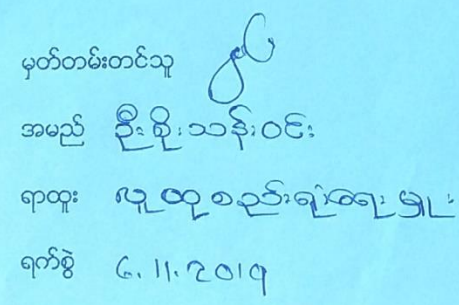 မှတ်တမ်းတင်သူ
အမည် ဦးစိုးသန်းဝင်း
ရာထူး လူထုစည်းရုံးရေးမှူး
ရက်စွဲ ၆.11.2019